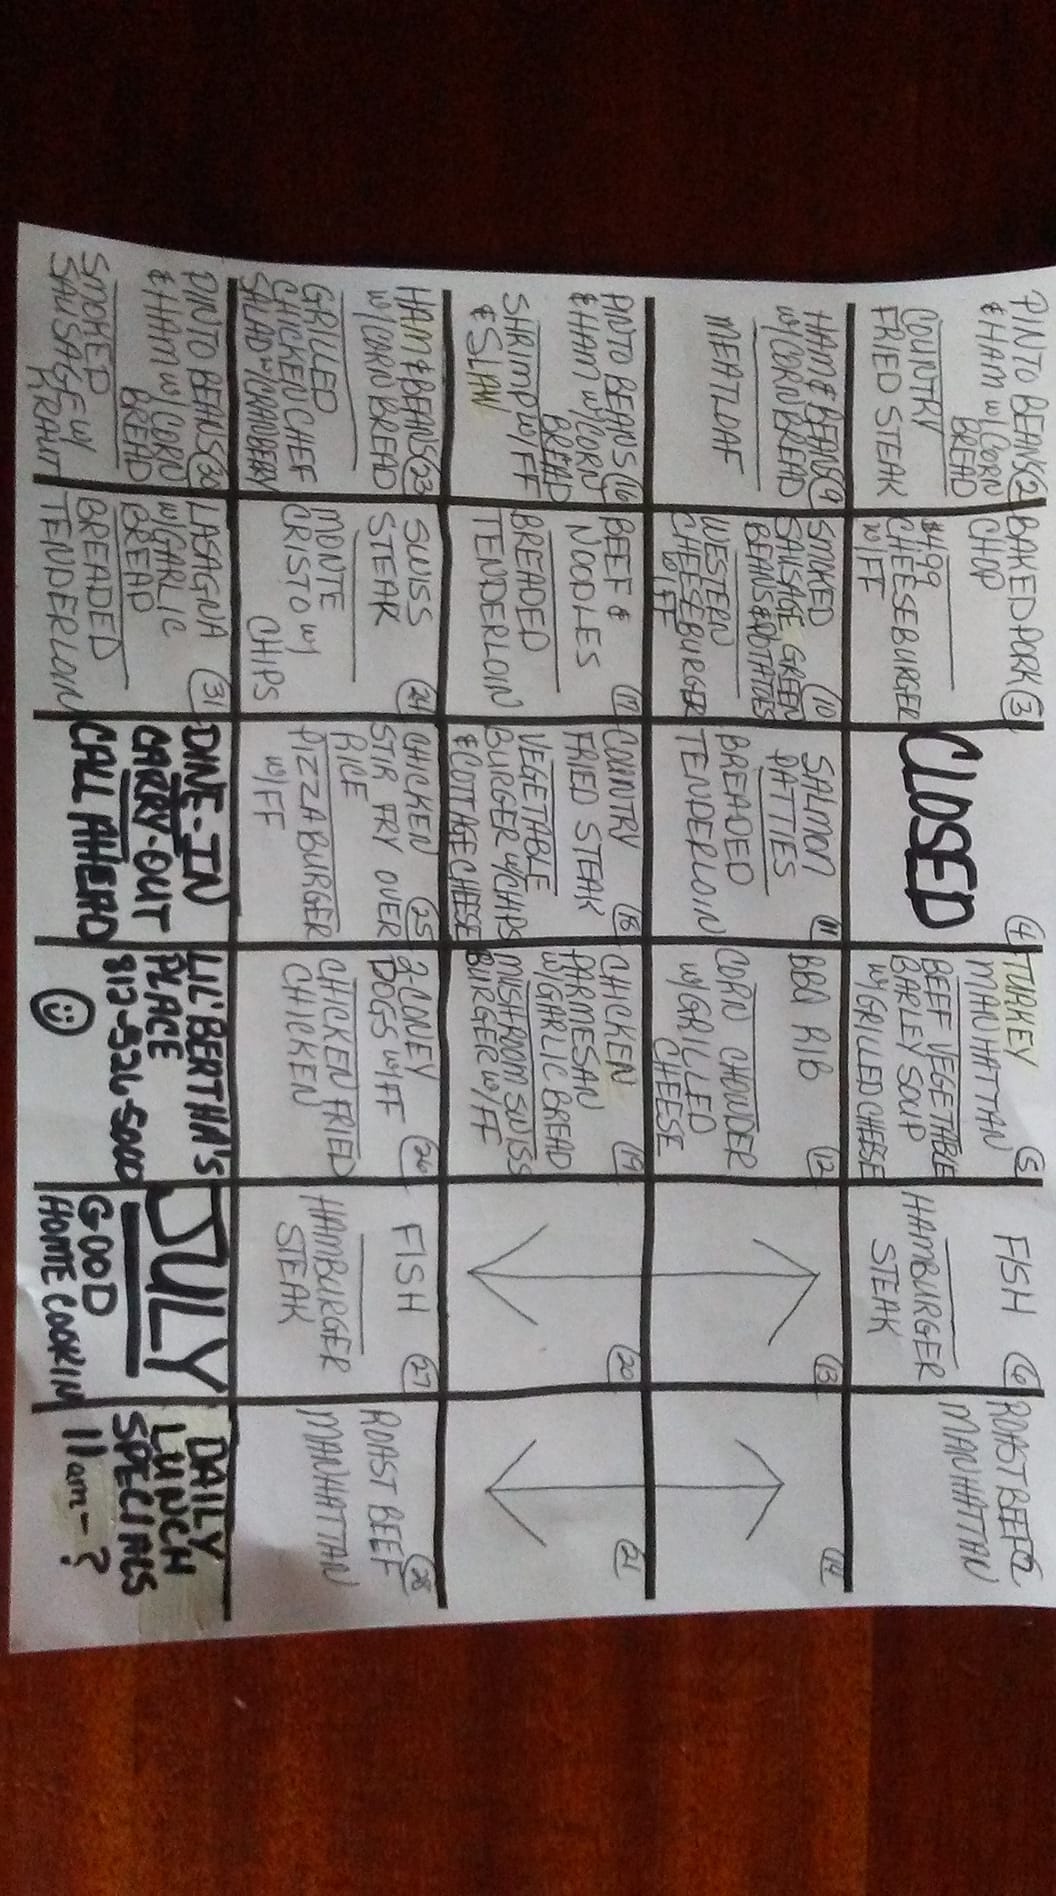 PINTO BEANS 2
& HAM W/ CORN
BREAD
COUNTRY
FRIED STEAK
BAKED PORK 3
CHOP
$4.99
CHEESEBURGER
W/FF
4
CLOSED
TURKEY
MANHATTAN 5
BEEF VEGETABLE
BARLEY SOUP
W/GRILLED CHEESE
FISH 6
HAMBURGER
STEAK
ROAST BEEF
MANHATTAN
HAM & BEANS 9
W/CORN BREAD
MEATLOAF
SMOKED 10
SAUSAGE GREEN
BEANS & POTATOES
WESTERN
CHEESEBURGER
W/FF
SALMON 11
PATTIES
BREADED
TENDERLOIN
BBQ RIB 12
CORN CHOWDER
W/GRILLED
CHEESE
13
14
PINTO BEANS 16
& HAM W/CORN
BREAD
SHRIMP W/FF
& SLAW
BEEF & 17
NOODLES
BREADED
TENDERLOIN
COUNTRY 18
FRIED STEAK
VEGETABLE
BURGER W/CHIPS
& COTTAGE CHEESE
CHICKEN 19
PARMESAN
W/GARLIC BREAD
MUSHROOM SWISS
BURGER W/FF
20
21
HAM & BEANS 23
W/CORN BREAD
GRILLED
CHICKEN CHEF
SALAD W/
SWISS 24
STEAK
MONTE
CRISTO W/
CHIPS
CHICKEN 25
STIR FRY OVER
RICE
PIZZA BURGER
W/FF
2-CONEY 26
DOGS W/FF
CHICKEN FRIED
CHICKEN
FISH 27
HAMBURGER
STEAK
ROAST BEEF 28
MANHATTAN
PINTO BEANS 30
& HAM W/CORN
BREAD
SMOKED
SAUSAGE W/
KRAUT
LASAGNA 31
W/GARLIC
BREAD
BREADED
TENDERLOIN
DINE-IN
CARRY-OUT
CALL AHEAD
LIL' BERTHA'S
PLACE
812-526-5000
JULY
GOOD
HOME COOKIN
DAILY
LUNCH
SPECIALS
11am-?